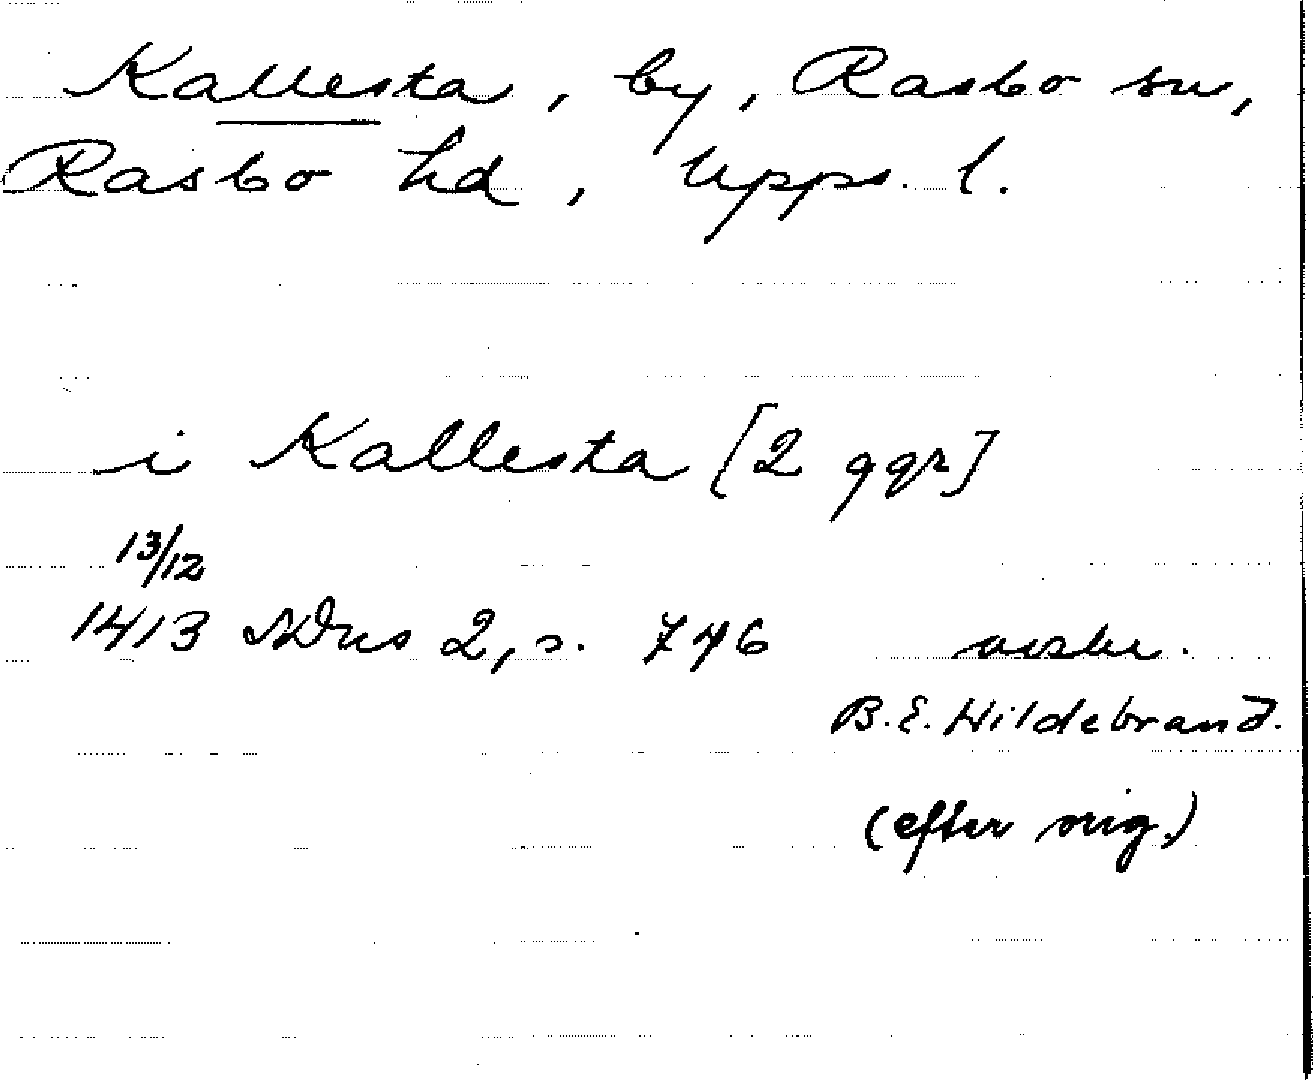 Kallesta, by, Rasbo sn,
Rasbo hd, Upps. l.
i Kallesta [2 ggr]
13/12
1413 SDns 2, s. 746 avskr.
B.E. Hildebrand.
(efter orig.)